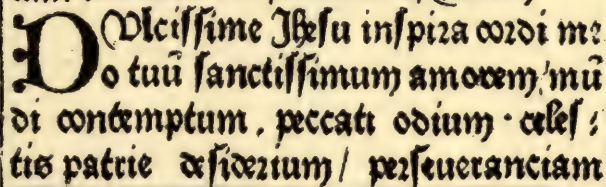 DUlcissime Jhesu inspira cordi me-
o tuū sanctissimum amorem, mū
di contemptum. peccati odium · celes-
tis patrie desiderium / perseueranciam